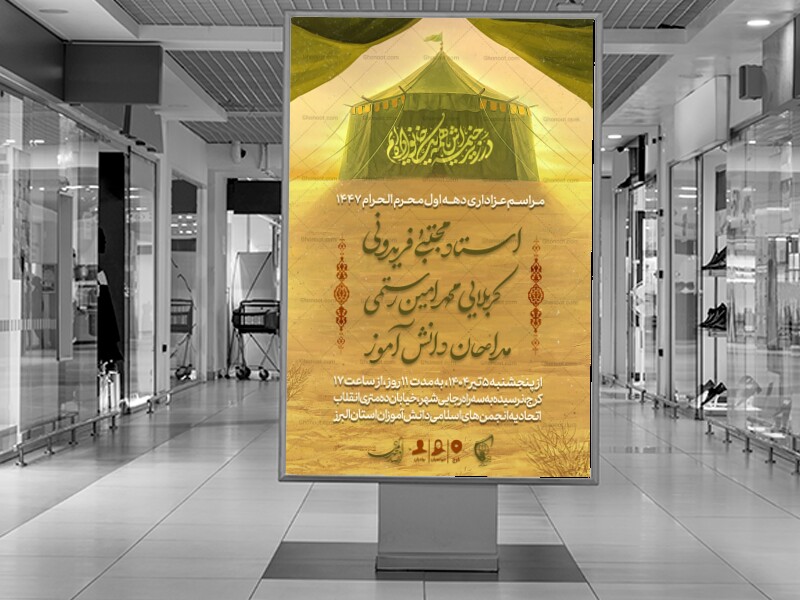 در زیر خیمه‌ایش همه یک خانواده‌ایم
مراسم عزاداری دهه اول محرم الحرام ۱۴۴۷
استاد مجتبی فریدونی
کربلایی محمد امین رستمی
مداحان دانش آموز
از پنجشنبه ۵ تیر ۱۴۰۴، به مدت ۱۱ روز، از ساعت ۱۷
کرج، نرسیده به سه راه رجایی شهر، خیابان ده متری انقلاب
اتحادیه انجمن های اسلامی دانش آموزان استان البرز